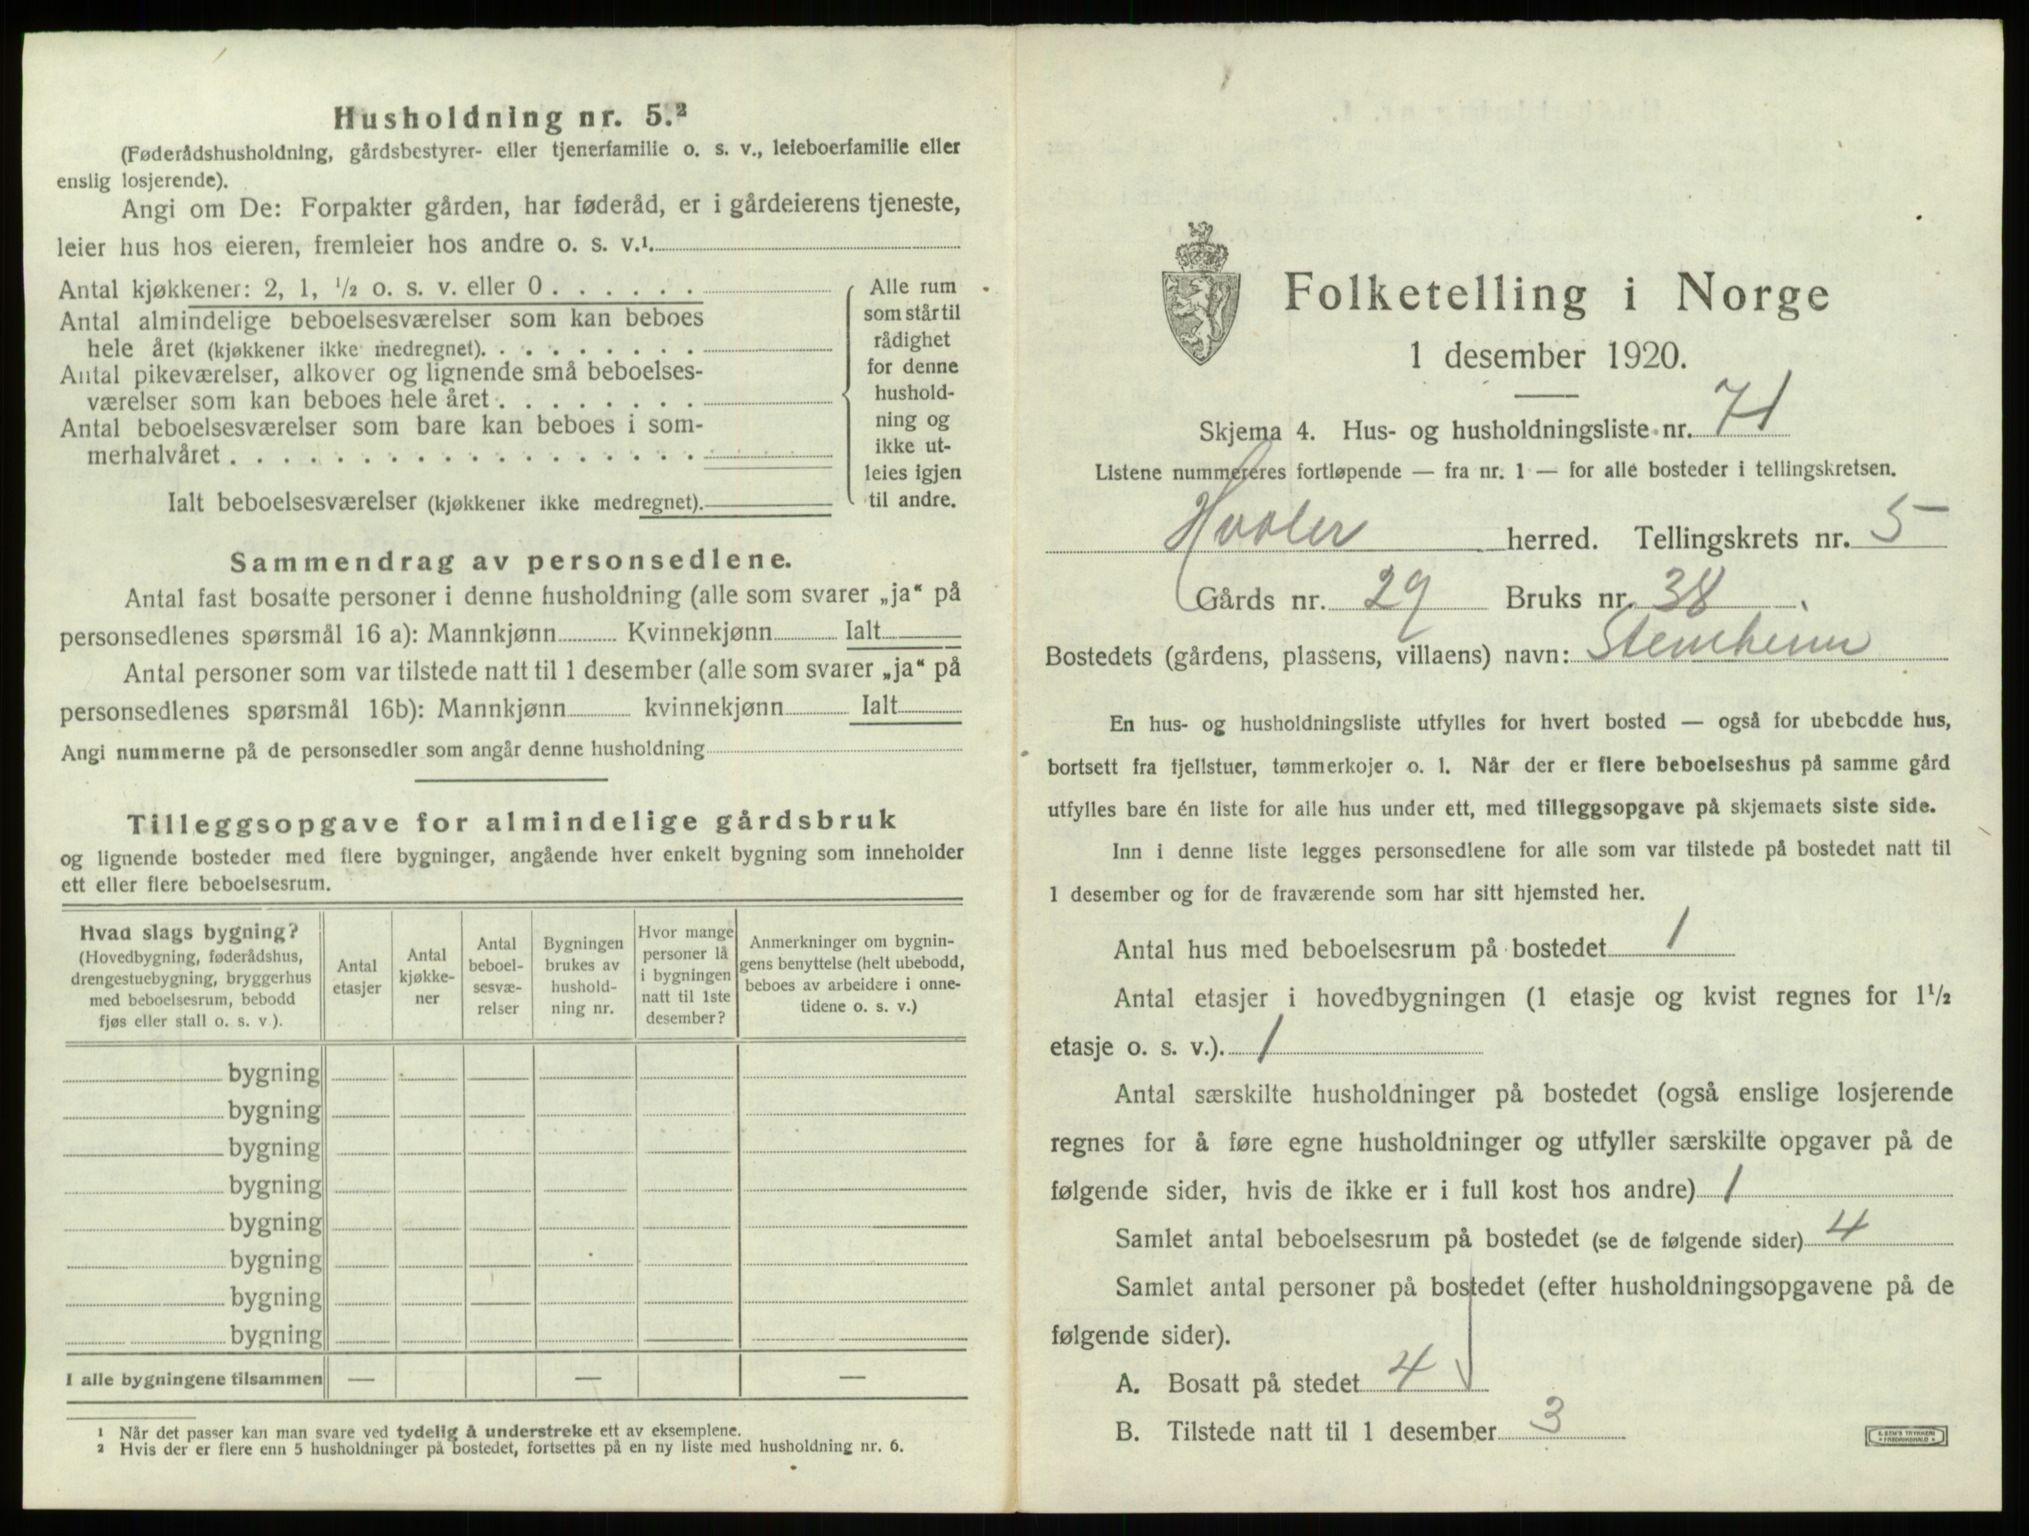 Husholdning nr. 5.²
(Føderådshusholdning, gårdsbestyrer- eller tjenerfamilie o. s. v., leieboerfamilie eller
enslig losjerende).
Angi om De: Forpakter gården, har føderåd, er i gårdeierens tjeneste,
leier hus hos eieren, fremleier hos andre o. s. v.¹
Antal kjøkkener: 2, 1, ½ o. s. v. eller 0 . . . . . .
Antal almindelige beboelsesværelser som kan beboes
hele året (kjøkkener ikke medregnet). . . . . . . . .
Antal pikeværelser, alkover og lignende små beboelses-
værelser som kan beboes hele året . . . . . . . .
Antal beboelsesværelser som bare kan beboes i som-
merhalvåret . . . . . . . . . . . . . . . . . .
Ialt beboelsesværelser (kjøkkener ikke medregnet).
Alle rum
som står til
rådighet
for denne
hushold-
ning og
ikke ut-
leies igjen
til andre.
Sammendrag av personsedlene.
Antal fast bosatte personer i denne husholdning (alle som svarer „ja“ på
personsedlenes spørsmål 16 a): Mannkjønn Kvinnekjønn Ialt
Antal personer som var tilstede natt til 1 desember (alle som svarer „ja“ på
personsedlenes spørsmål 16b): Mannkjønn kvinnekjønn Ialt
Angi nummerne på de personsedler som angår denne husholdning
Tilleggsopgave for almindelige gårdsbruk
og lignende bosteder med flere bygninger, angående hver enkelt bygning som inneholder
ett eller flere beboelsesrum.
Hvad slags bygning?
(Hovedbygning, føderådshus,
drengestuebygning, bryggerhus
med beboelsesrum, bebodd
fjøs eller stall o. s. v.).
Antal
etasjer
Antal
kjøkke-
ner
Antal
beboel-
sesvæ-
relser
Bygningen
brukes av
hushold-
ning nr.
Hvor mange
personer lå
i bygningen
natt til 1ste
desember?
Anmerkninger om bygnin-
gens benyttelse (helt ubebodd,
beboes av arbeidere i onne-
tidene o. s. v.)
bygning
bygning
bygning
bygning
bygning
bygning
bygning
bygning
I alle bygningene tilsammen — — —
¹ Når det passer kan man svare ved tydelig å understreke ett av eksemplene.
² Hvis der er flere enn 5 husholdninger på bostedet, fortsettes på en ny liste med husholdning nr. 6.
Folketelling i Norge
1 desember 1920.
Skjema 4. Hus- og husholdningsliste nr. 71
Listene nummereres fortløpende — fra nr. 1 — for alle bosteder i tellingskretsen.
Hvaler herred. Tellingskrets nr. 5
Gårds nr. 29 Bruks nr. 38
Bostedets (gårdens, plassens, villaens) navn: Stenheim
En hus- og husholdningsliste utfylles for hvert bosted — også for ubebodde hus,
bortsett fra fjellstuer, tømmerkojer o. l. Når der er flere beboelseshus på samme gård
utfylles bare én liste for alle hus under ett, med tilleggsopgave på skjemaets siste side.
Inn i denne liste legges personsedlene for alle som var tilstede på bostedet natt til
1 desember og for de fraværende som har sitt hjemsted her.
Antal hus med beboelsesrum på bostedet 1
Antal etasjer i hovedbygningen (1 etasje og kvist regnes for 1½
etasje o. s. v.). 1
Antal særskilte husholdninger på bostedet (også enslige losjerende
regnes for å føre egne husholdninger og utfyller særskilte opgaver på de
følgende sider, hvis de ikke er i full kost hos andre) 1
Samlet antal beboelsesrum på bostedet (se de følgende sider) 4
Samlet antal personer på bostedet (efter husholdningsopgavene på de
følgende sider).
A. Bosatt på stedet 4
B. Tilstede natt til 1 desember 3